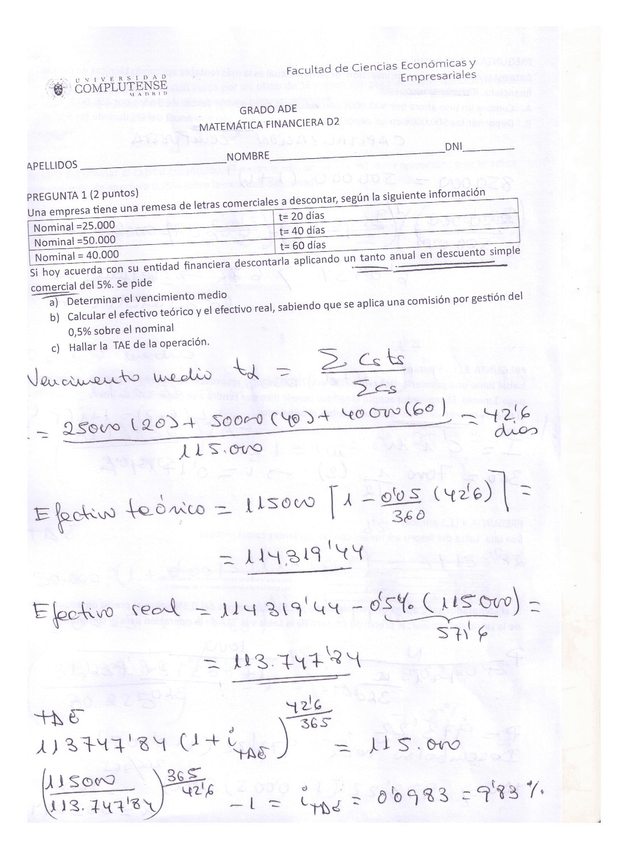 UNIVERSIDAD
COMPLUTENSE
MADRID
Facultad de Ciencias Económicas y
Empresariales
GRADO ADE
MATEMÁTICA FINANCIERA D2
APELLIDOS ____________________NOMBRE____________________DNI________
PREGUNTA 1 (2 puntos)
Una empresa tiene una remesa de letras comerciales a descontar, según la siguiente información
Nominal =25.000 t= 20 días
Nominal =50.000 t= 40 días
Nominal = 40.000 t= 60 días
Si hoy acuerda con su entidad financiera descontarla aplicando un tanto anual en descuento simple
comercial del 5%. Se pide
a) Determinar el vencimiento medio
b) Calcular el efectivo teórico y el efectivo real, sabiendo que se aplica una comisión por gestión del
0,5% sobre el nominal
c) Hallar la TAE de la operación.
Vencimiento medio td = Σ Cs ts / Σ Cs
= 25000 (20) + 50000 (40) + 40000 (60) / 115.000 = 42'6 días
Efectivo teórico = 115000 [1 - 0'05/360 (42'6)] =
= 114.319'44
Efectivo real = 114319'44 - 0'5% (115000) =
571'6
= 113.747'84
TAE
113747'84 (1 + i TAE)^42'6/365 = 115.000
(115000/113.747'84)^365/42'6 - 1 = i TAE = 0'0983 = 9'83 %